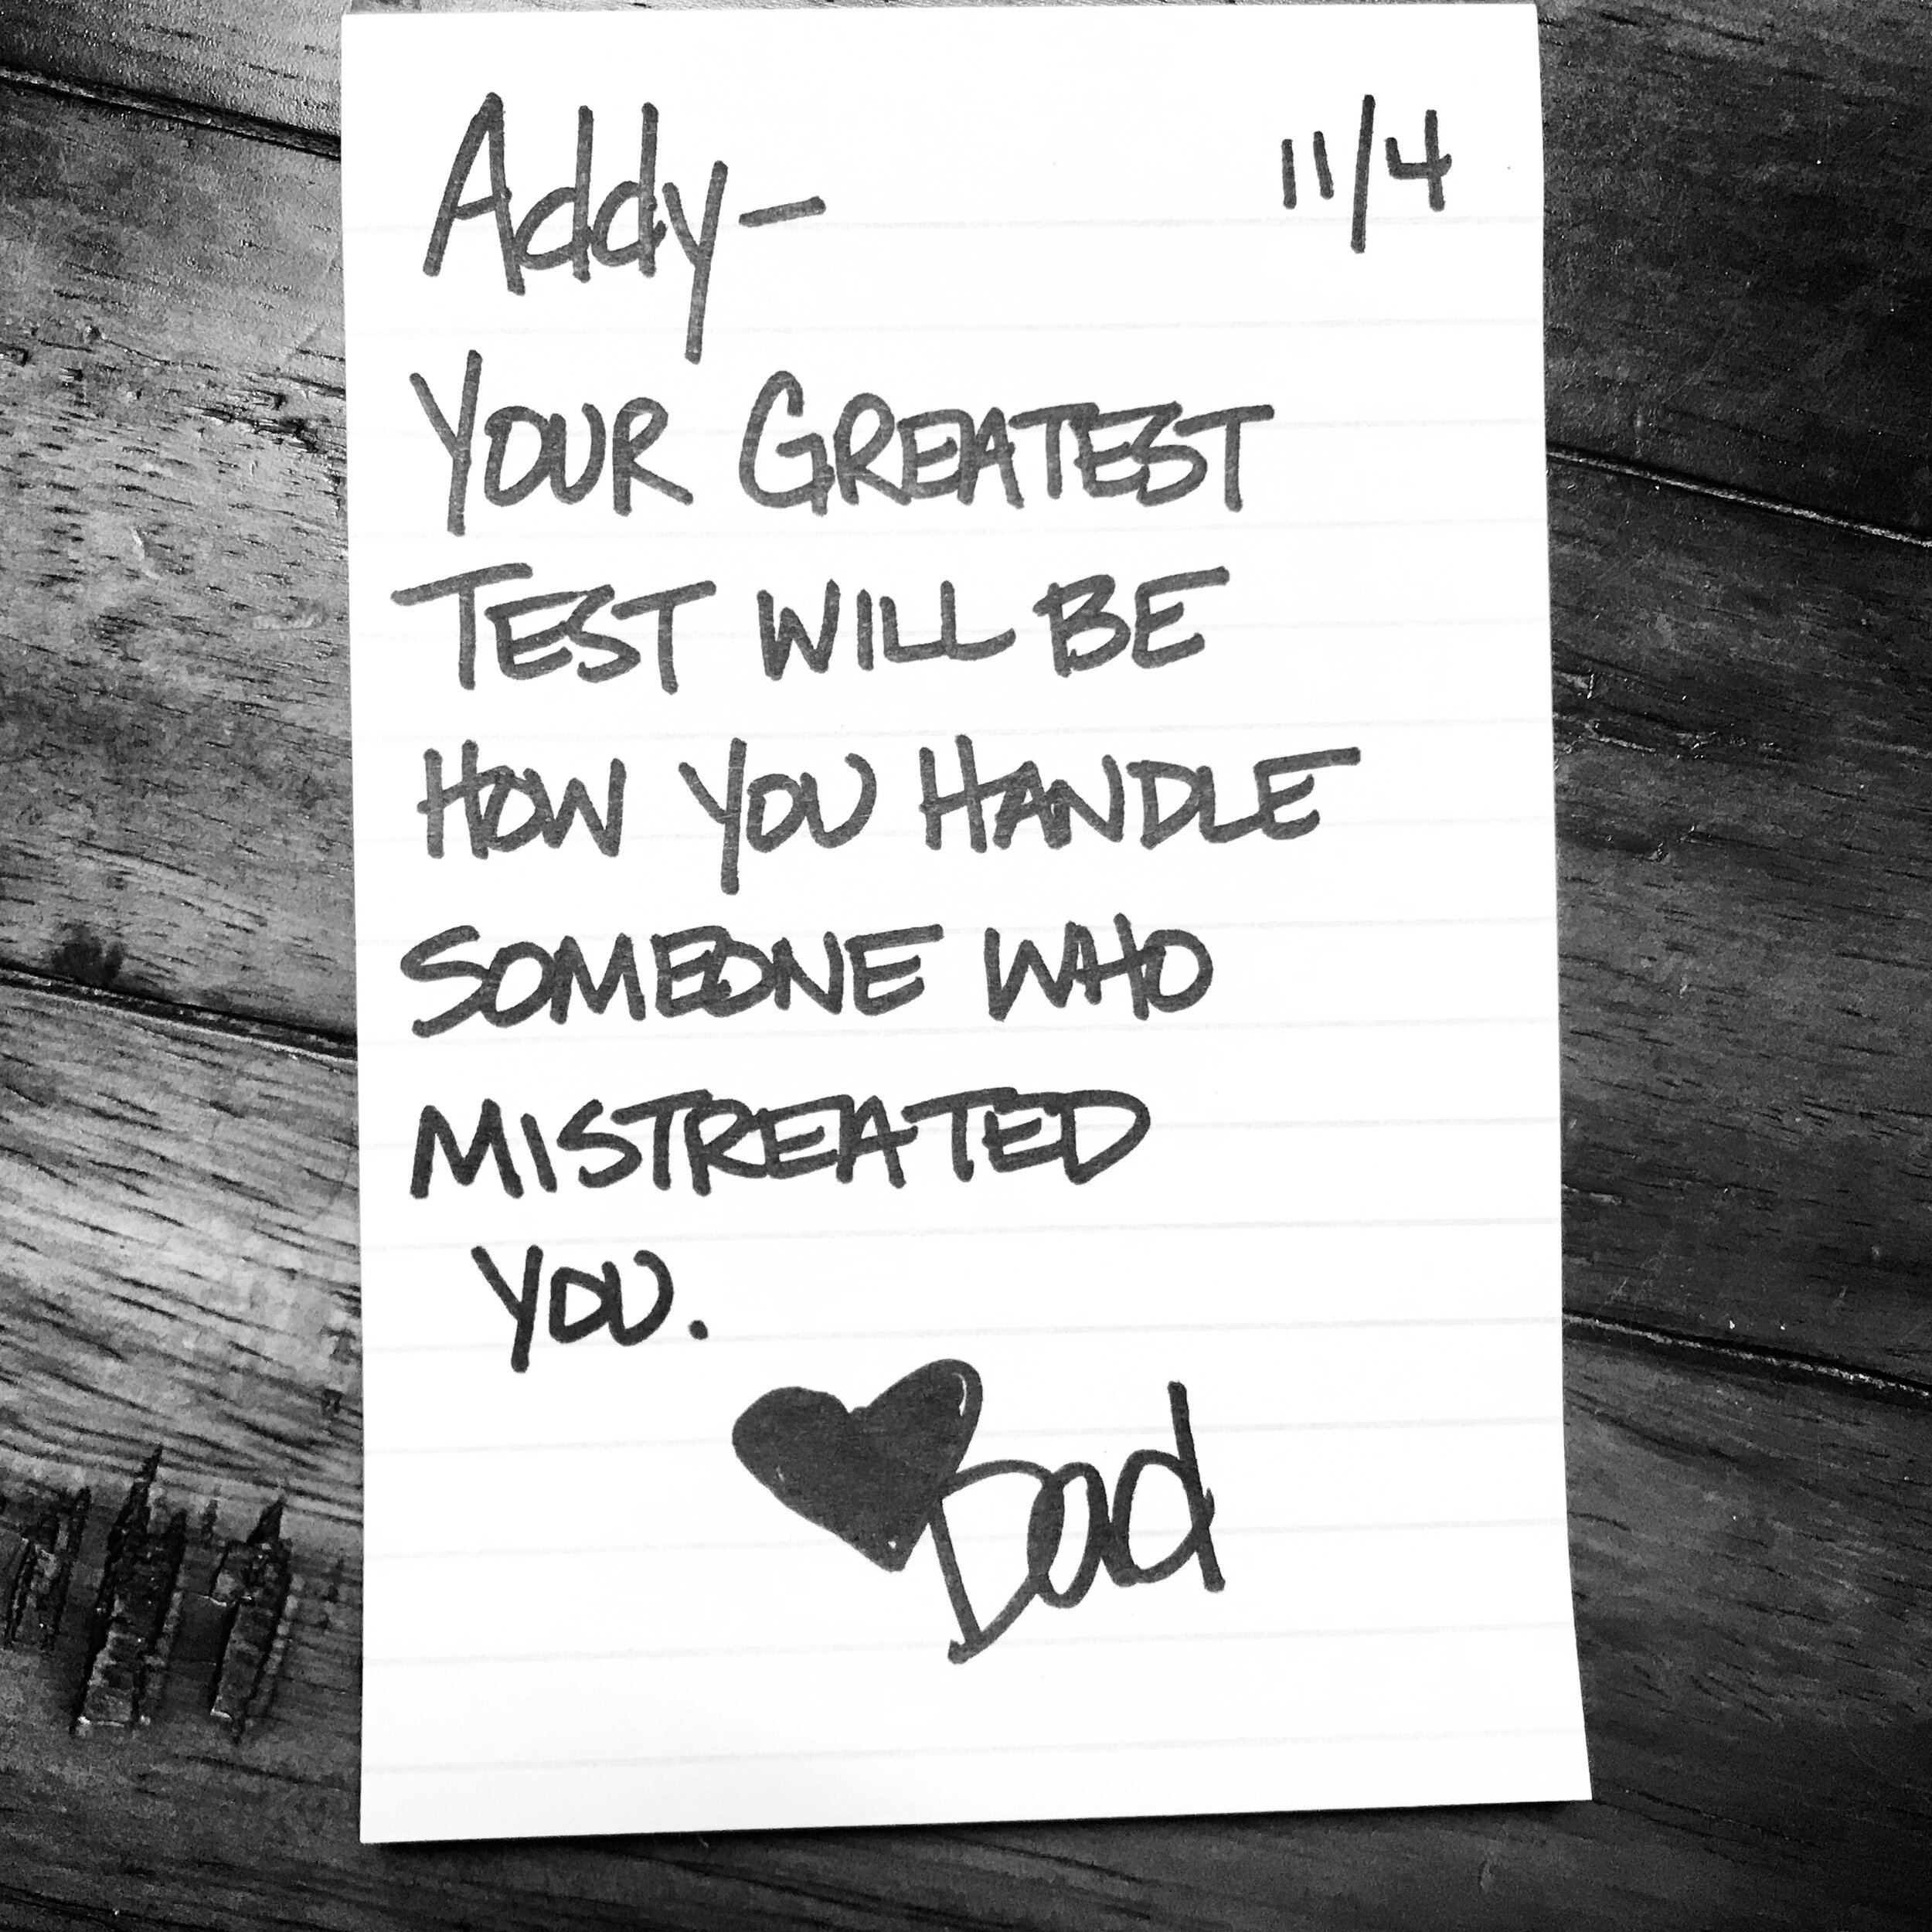 Addy- 11/4
YOUR GREATEST
TEST WILL BE
HOW YOU HANDLE
SOMEONE WHO
MISTREATED
YOU.
Dad